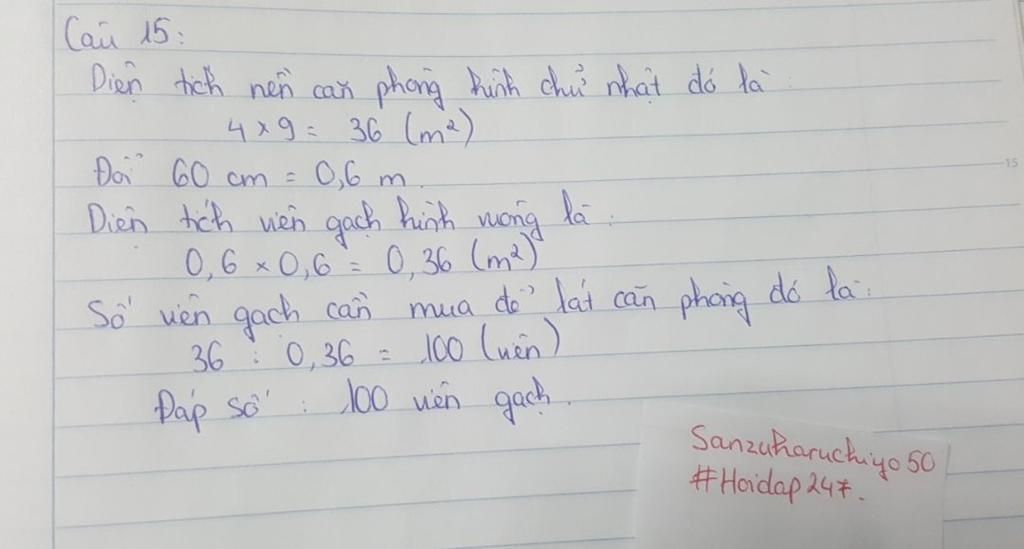 Câu 15:
Diện tích nền căn phòng hình chữ nhật đó là:
4 x 9 = 36 (m²)
Đổi 60 cm = 0,6 m.
Diện tích viên gạch hình vuông là:
0,6 x 0,6 = 0,36 (m²)
Số viên gạch cần mua để lát căn phòng đó là:
36 : 0,36 = 100 (viên)
Đáp số : 100 viên gạch.
15
Sanzuharuchiyo50
#Hoidap247.